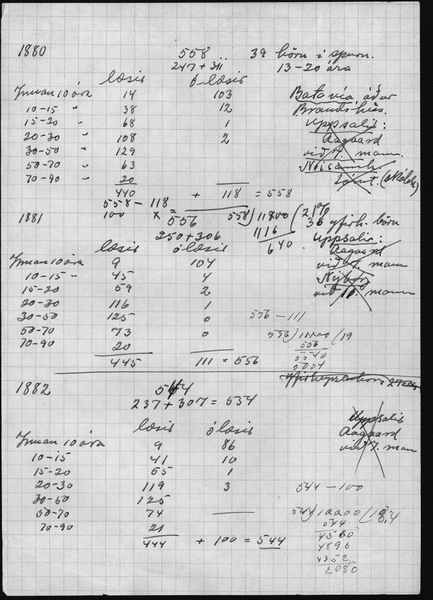 1880
558 .. 39 börn í spurn.
247 + 311 13-20 ára
læsis ólæsis
Innan 10 ára 14 103 Batavía áður
10-15 " 38 12 Brandshús.
15-20 " 68 1 Uppsalis:
20-30 " 108 2 Aagaard
30-50 " 129 við 7. mann.
50-70 " 63
70-90 " 20
440 + 118 = 558
558 - 118
100 x = 21%
1881 556 558/11800/
250 + 306 1116 36 yfirh. börn
læsis ólæsis 640. Uppsalir:
Innan 10 ára 9 104 Aagaard
10-15 " 45 4 við 7. mann
15-20 59 2 Nýbor
20-30 116 1 við 10. mann
30-50 125 0 556 - 111
50-70 73 0 556/11100/19
70-90 20 556
445 111 = 556 5540
5004
1882 544
237 + 307 = 534
læsis ólæsis Uppsalis
Innan 10 ára 9 86 Aagaard
10-15 41 10 við 7. mann
15-20 65 1
20-30 119 3 544 - 100
30-50 125
50-70 74 544/10000/18,4
70-90 21 544
444 + 100 = 544 4560
4896
4352
2080